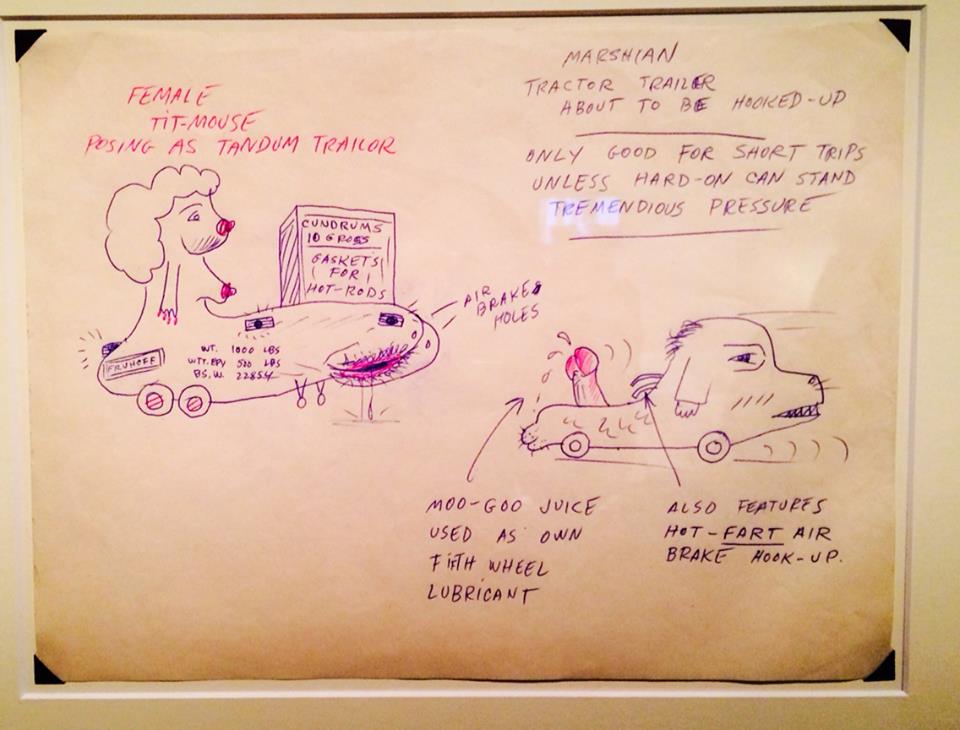 FEMALE
TIT-MOUSE
POSING AS TANDUM TRAILOR
MARSHIAN
TRACTOR TRAILER
ABOUT TO BE HOOKED-UP
ONLY GOOD FOR SHORT TRIPS
UNLESS HARD-ON CAN STAND
TREMENDIOUS PRESSURE
CUNDRUMS
10 GROSS
GASKETS
FOR
HOT-RODS
AIR
BRAKE
HOLES
FRUHOFF
WT. 1000 LBS
WTT. EPV 500 LBS
BS.W. 22854
MOO-GOO JUICE
USED AS OWN
FIFTH WHEEL
LUBRICANT
ALSO FEATURES
HOT-FART AIR
BRAKE HOOK-UP.